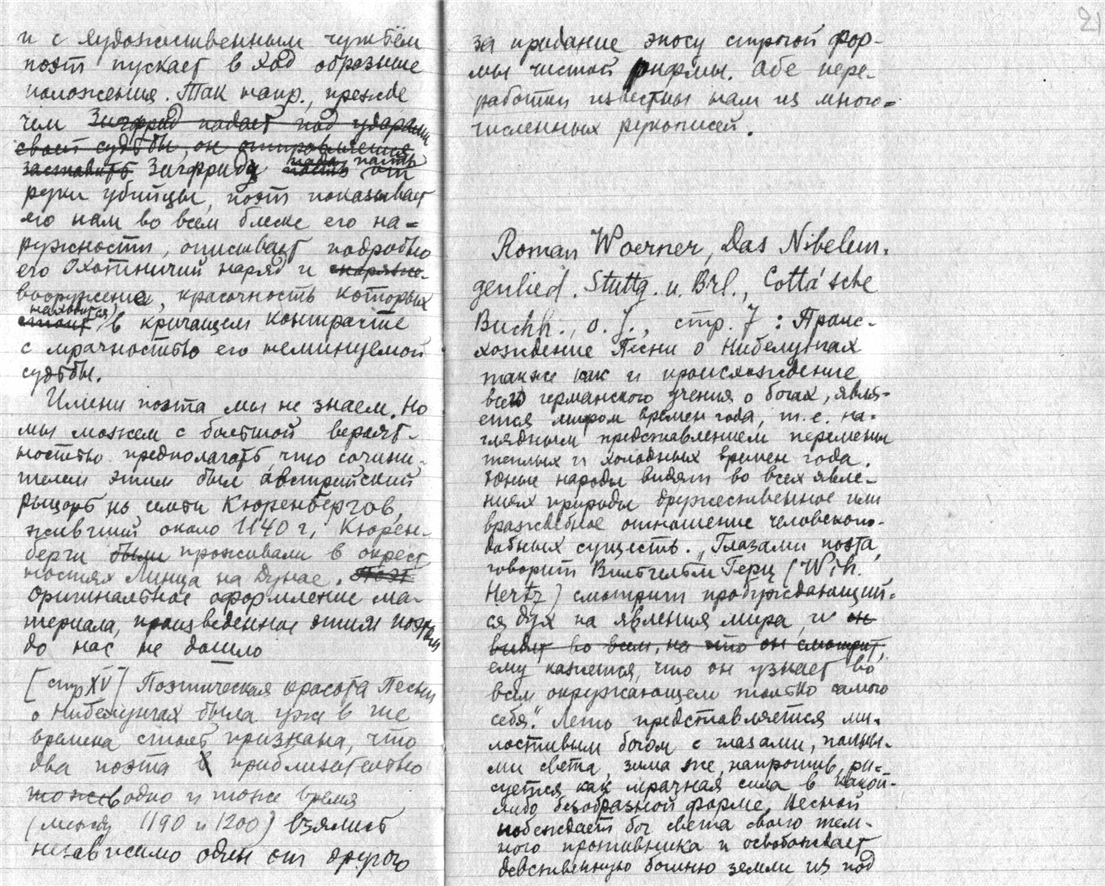 21
и с художественным чутьём
поэт пускает в ход образные
положения. Так напр., прежде
чем Зигфрид падает под ударами
своей судьбы, он
заставить Зигфрида пасть от
руки убийцы, поэт показывает
его нам во всем блеске его на=
ружности, описывает подробно
его охотничий наряд и снаряже-
вооружение, красочность которых
находится
стоит в кричащем контрасте
с мрачностью его неминуемой
судьбы.
Имени поэта мы не знаем. Но
мы можем с большой вероят-
ностью предполагать что сочини-
телем этим был австрийский
рыцарь из семьи Кюренбергов,
живший около 1140 г. Кюрен-
берги были проживали в окрест
ностях Линца на Дунае. Поэт
Оригинальное оформление ма-
териала, произведенное этим поэтом
до нас не дошло
[стр XV] Поэтическая красота Песни
о Нибелунгах была уже в те
времена столь признана, что
два поэта в приблизительно
тоже в одно и тоже время
(между 1190 и 1200) взялись
независимо один от другого
за придание эпосу строгой фор-
мы чистой рифмы. Обе пере-
работки известны нам из много=
численных рукописей.
Roman Woerner, Das Nibelun-
genlied. Stuttg. u. Brl., Cotta'sche
Buchh., o. J., стр. 7: Проис-
хождение Песни о Нибелунгах
также как и происхождение
всего германского учения о богах, явля-
ется мифом времен года, т.е. на-
глядным представлением перемены
теплых и холодных времен года.
Юные народы видят во всех явле-
ниях природы дружественное или
враждебное отношение человекопо-
добных существ. „Глазами поэта,
говорит Вильгельм Герц (Wilh.
Hertz) смотрит пробуждающий-
ся дух на явления мира, и он
видит во всем, на что он смотрит,
ему кажется, что он узнает во
всем окружающем только самого
себя." Лето представляется ми-
лостивым богом с глазами, полны-
ми света, зима же, напротив, ри-
суется как мрачная сила в какой-
либо безобразной форме. Весной
побеждает бог света своего тем-
ного противника и освобождает
девственную богиню земли из под